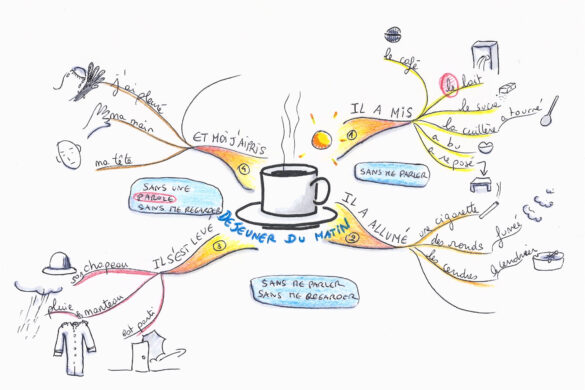 DÉJEUNER DU MATIN
1
IL A MIS
le café
le lait
le sucre
la cuillère a tourné
a bu
a reposé
SANS ME PARLER
2
IL A ALLUMÉ
une cigarette
des ronds fumée
les cendres cendrier
SANS ME PARLER
SANS ME REGARDER
3
IL S'EST LEVÉ
son chapeau
pluie manteau
est parti
SANS UNE
PAROLE
SANS ME REGARDER
4
ET MOI J'AI PRIS
ma tête
ma main
j'ai pleuré